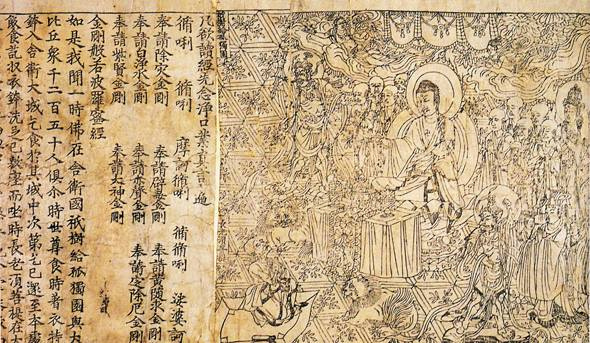 凡欲讀經先念淨口業真言一遍
脩唎 脩唎 摩訶脩唎 脩脩唎 娑婆訶
奉請除灾金剛 奉請辟毒金剛 奉請黃隨求金剛
奉請白淨水金剛 奉請赤聲金剛 奉請定除厄金剛
奉請紫賢金剛 奉請大神金剛
金剛般若波羅蜜經
如是我聞一時佛在舍衛國祇樹給孤獨園與大
比丘衆千二百五十人俱尒時世尊食時著衣持
鉢入舍衛大城乞食於其城中次第乞已還至本處
飯食訖收衣鉢洗足已敷座而坐時長老須菩提在大